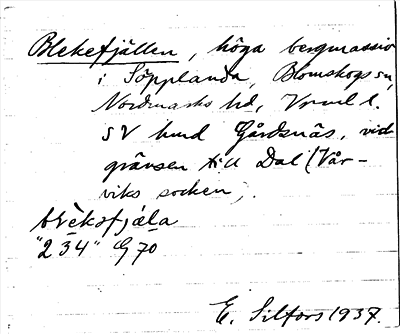 Blekefjällen, höga bergmassiv
i Söpplanda, Blomskogs sn,
Nordmarks hd, Vrml l.
SV  Gårdsnäs, vid
gränsen till Dal (Vår-
viks socken,.
blèksfjäla
"234" G70
E. Silfors 1937.